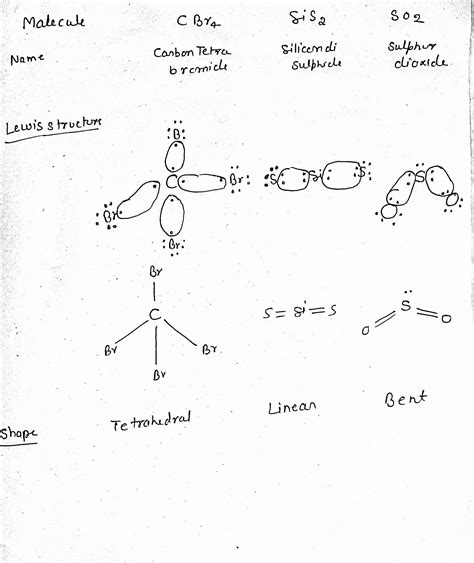 Malecule CBr4 SiS2 SO2
Name Carbon Tetra bromide Silicondi sulphide Sulphur dioxide
Lewis structure
:Br:
C Br: :S Si S: S
:Br
:Br:
Br
C
Br Br
Br
S=Si=S
S
O O
Shape Tetrahedral Linear Bent